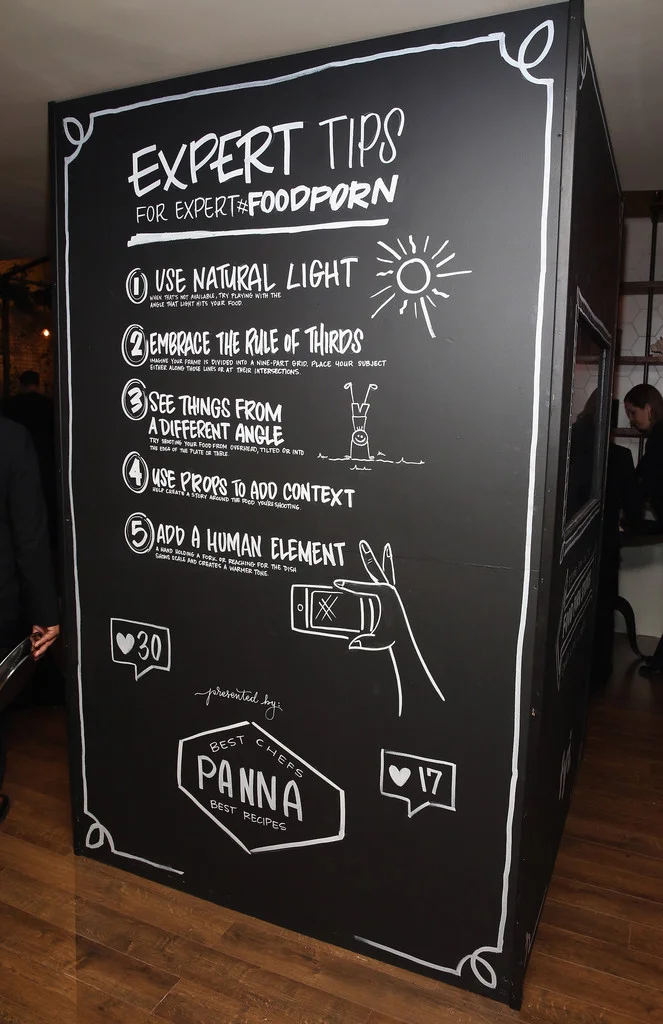 EXPERT TIPS
FOR EXPERT #FOODPORN
1 USE NATURAL LIGHT
WHEN THAT'S NOT AVAILABLE, TRY PLAYING WITH THE
ANGLE THAT LIGHT HITS YOUR FOOD.
2 EMBRACE THE RULE OF THIRDS
IMAGINE YOUR FRAME IS DIVIDED INTO A NINE-PART GRID. PLACE YOUR SUBJECT
EITHER ALONG THOSE LINES OR AT THEIR INTERSECTIONS.
3 SEE THINGS FROM
A DIFFERENT ANGLE
TRY SHOOTING YOUR FOOD FROM OVERHEAD, TILTED OR INTO
THE EDGE OF THE PLATE OR TABLE.
4 USE PROPS TO ADD CONTEXT
HELP CREATE A STORY AROUND THE FOOD YOU'RE SHOOTING.
5 ADD A HUMAN ELEMENT
A HAND HOLDING A FORK OR REACHING FOR THE DISH
SHOWS SCALE AND CREATES A WARMER TONE.
30
presented by:
BEST CHEFS
PANNA
BEST RECIPES
17